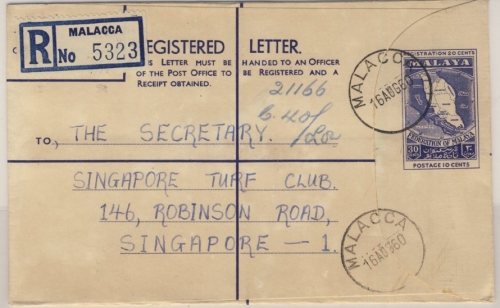 MALACCA
R No 5323
REGISTERED LETTER.
THIS LETTER MUST BE HANDED TO AN OFFICER
OF THE POST OFFICE TO BE REGISTERED AND A
RECEIPT OBTAINED.
21166
MALACCA
16AUG60
REGISTRATION 20 CENTS
MALAYA
FEDERATION OF MALAYA
30
POSTAGE 10 CENTS
TO, THE SECRETARY.
SINGAPORE TURF CLUB.
146, ROBINSON ROAD,
SINGAPORE — 1.
MALACCA
16AUG60